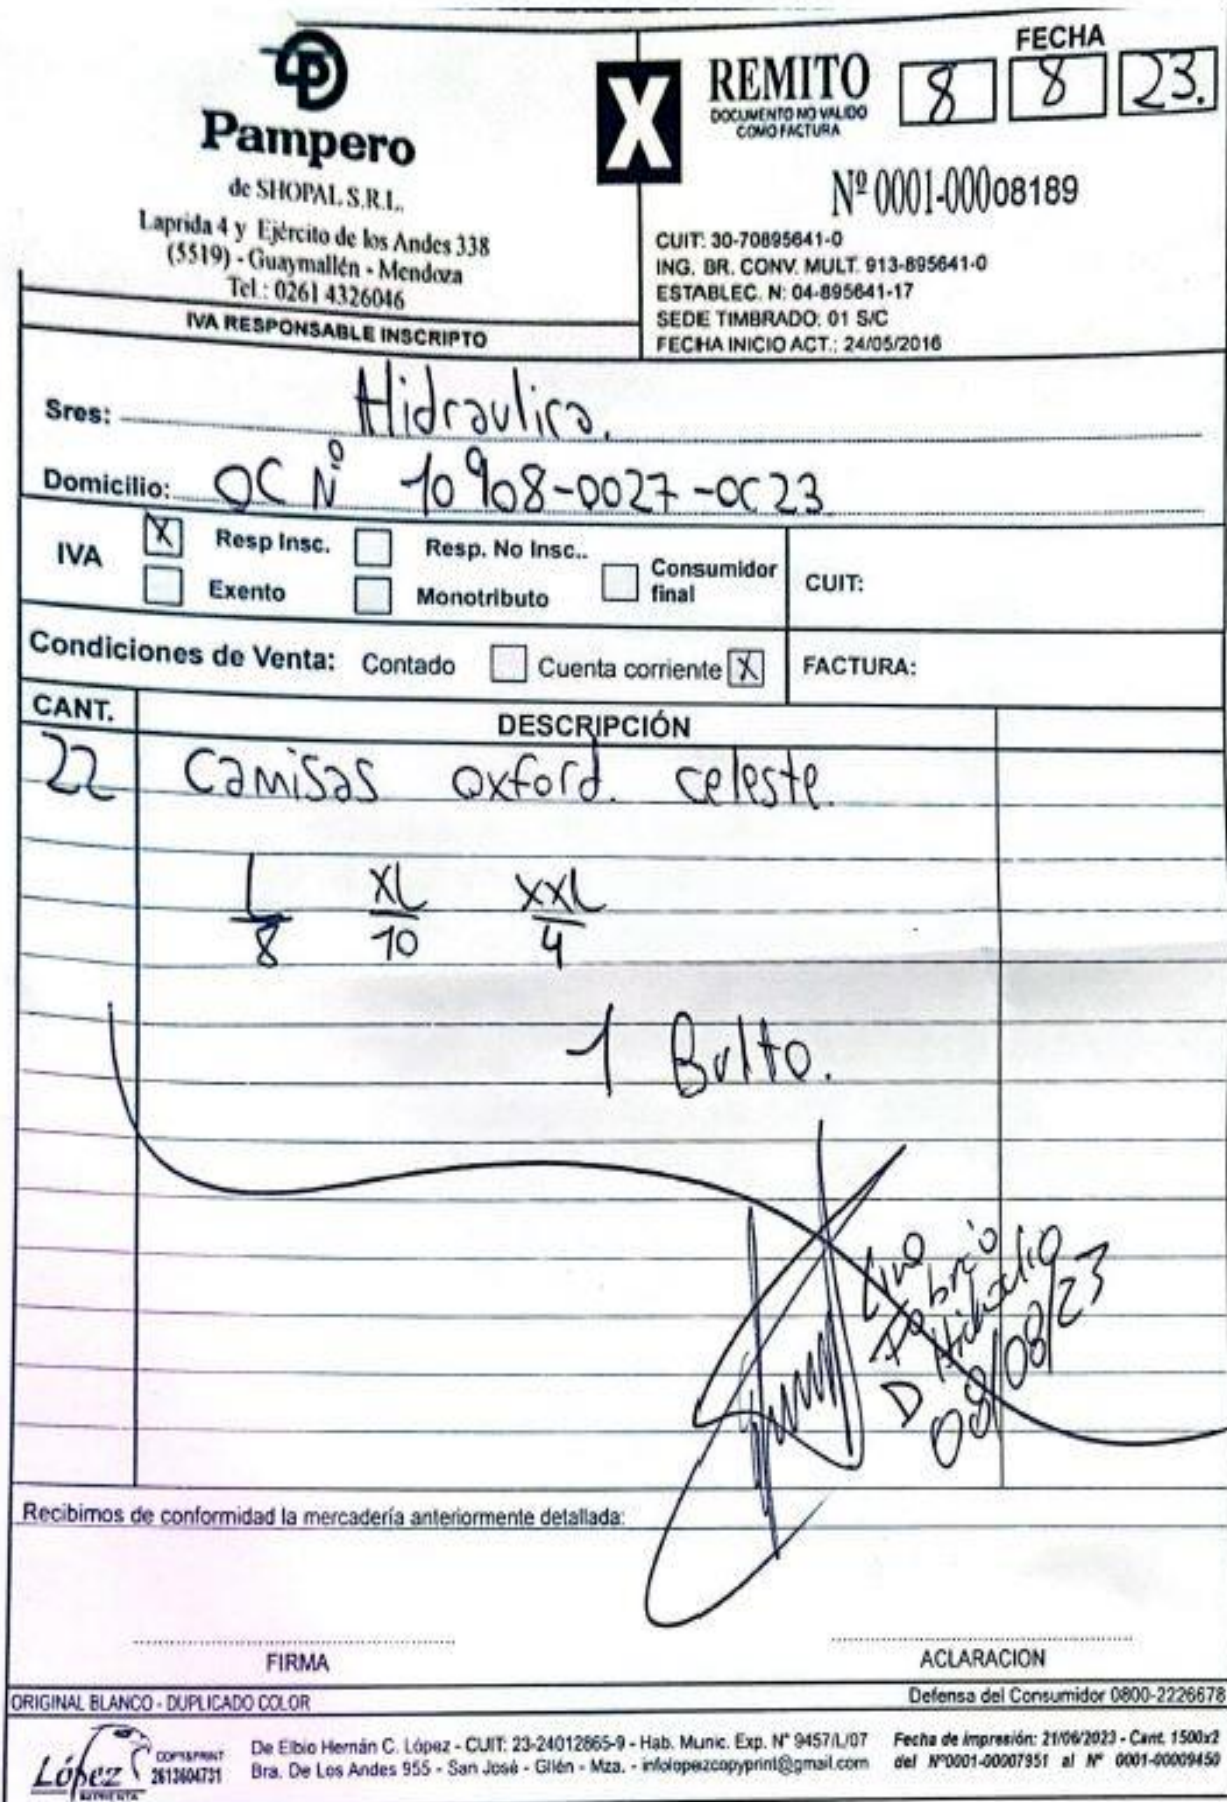 Pampero
de SHOPAL S.R.L.
Laprida 4 y Ejército de los Andes 338
(5519) - Guaymallén - Mendoza
Tel.: 0261 4326046
IVA RESPONSABLE INSCRIPTO
X
REMITO
DOCUMENTO NO VALIDO
COMO FACTURA
FECHA
8 8 23.
Nº 0001-00008189
CUIT: 30-70895641-0
ING. BR. CONV. MULT. 913-895641-0
ESTABLEC. N: 04-895641-17
SEDE TIMBRADO: 01 S/C
FECHA INICIO ACT.: 24/05/2016
Sres: Hidraulica.
Domicilio: OC Nº 10908-0027-OC23
IVA X Resp Insc. Resp. No Insc..
Exento Monotributo Consumidor final
CUIT:
Condiciones de Venta: Contado Cuenta corriente X
FACTURA:
CANT. DESCRIPCIÓN
22 Camisas oxford. celeste.
L XL XXL
8 10 4
1 Bulto.
08/08/23
Recibimos de conformidad la mercadería anteriormente detallada:
FIRMA ACLARACION
ORIGINAL BLANCO - DUPLICADO COLOR Defensa del Consumidor 0800-2226678
López COPY&PRINT
2613604731
IMPRENTA
De Elbio Hernán C. López - CUIT: 23-24012865-9 - Hab. Munic. Exp. N° 9457/L/07
Bra. De Los Andes 955 - San José - Gllén - Mza. - infolopezcopyprint@gmail.com
Fecha de impresión: 21/06/2023 - Cant. 1500x2
del Nº0001-00007951 al Nº 0001-00009450